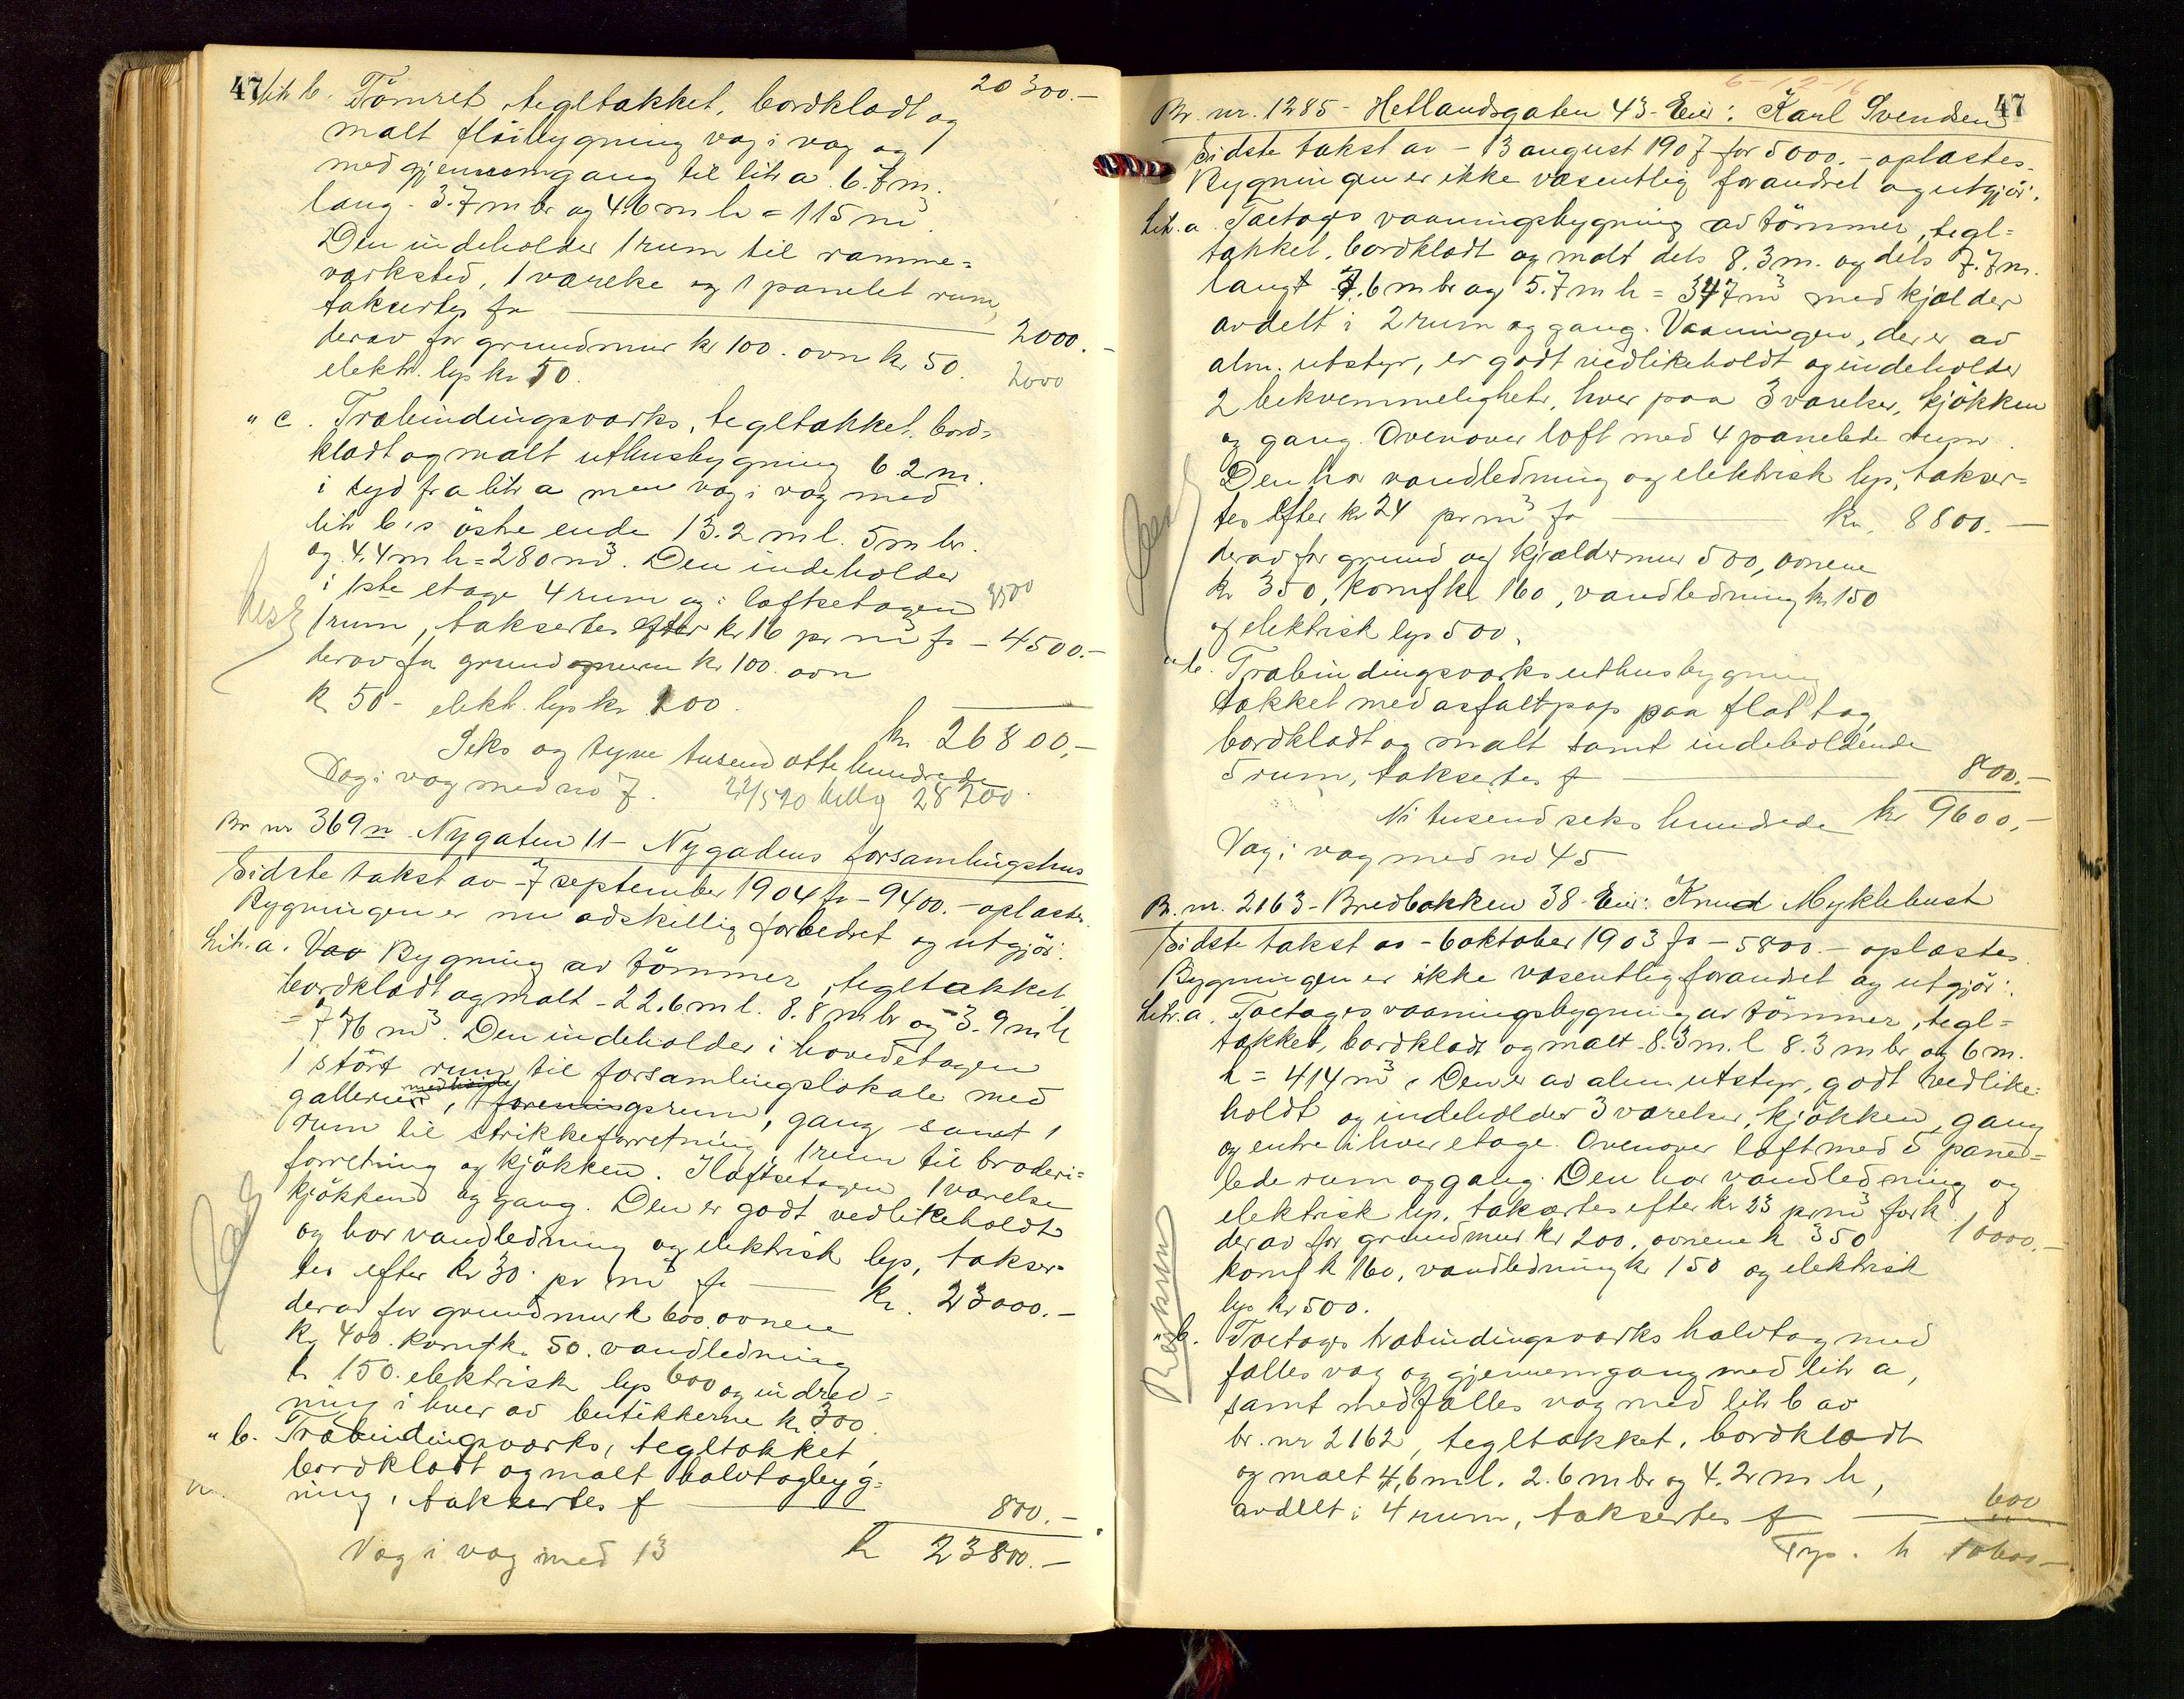 47
20300.-
litr b. Tömret, tegltækket, bordklædt og
malt flöibygning væg i væg og
med gjennemgang til litr a. 6.7 m.
lang - 3.7 m br og 4.6 m h = 115 m³.
Den indeholder 1 rum til ramme=
værksted, 1 værelse og 1 panelet rum,
takseres for 2000.-
derav for grundmur kr 100. ovn kr. 50.
elektr. lys kr 50. 2000
" c. Træbindingsværks, tegltækket, bord=
klædt og malt uthusbygning 6.2 m.
i syd fra litr a men væg i væg med
litr b's östre ende 13.2 m l. 5 m br.
og 4.4 m h = 280 m³. Den indeholder
i 1ste etage 4 rum og i loftsetagen 3500
1 rum, takseres efter kr 16 pr m³ for - 4500.-
derav for grundmuren kr 100. ovn
kr 50 - elekt. lys kr. 200.
kr 26800.-
Seks og tyve tusend otte hundrede
Væg i væg med no 7. 28200
Br nr 369n Nygaten 11 - Nygadens forsamlingshus
Sidste takst av - 7 september 1904 for - 9400. - oplæstes.
Bygningen er nu adskillig forbedret og utgjör:
Litr. a. Bygning av tömmer, tegltækket,
bordklædt og malt - 22.6 m l. 8.8 m br og 3.9 m h
= 776 m³. Den indeholder i hovedetagen
1 stört rum til forsamlingslokale med
gallerier, 1 foreningsrum, gang samt 1
rum til strikkeforretning, 1 rum til broderi=
forretning og kjökken. I loftsetagen 1 værelse
kjökken og gang. Den er godt vedlikeholdt
og har vandledning og elektrisk lys, takser=
tes efter kr 30. pr m³ for kr. 23000.-
derav for grundmur kr 600. ovnene
kr 400. komf kr. 50. vandledning
kr 150. elektrisk lys 600 og indred=
ning i hver av butikkerne kr. 300.
" b. Træbindingsværks, tegltækket,
bordklædt og malt halvtagbyg=
ning, taksertes f 800.-
Væg i væg med 13 kr 23800.-
6-12-16
47
Br. nr. 1285 - Hetlandsgaten 43 - Eier: Karl Svendsen
Sidste takst av - 13 august 1907 for 5000. - oplæstes.
Bygningen er ikke væsentlig forandret og utgjör:
Litr. a. Toetages vaaningsbygning av tömmer, tegl=
tækket, bordklædt og malt dels 8.3 m. og dels 7.7 m.
langt 7.6 m br og 5.7 m h = 347 m³ med kjælder
avdelt i 2 rum og gang. Vaaningen, der er av
alm. utstyr, er godt vedlikeholdt og indeholder
2 bekvemmeligheter, hver paa 3 værelser, kjökken
og gang. Ovenover loft med 4 panelede rum.
Den har vandledning og elektrisk lys, takser=
tes efter kr 24 pr m³ for kr. 8800.-
derav for grund og kjældermur 500, ovnene
kr 350, komf kr 160, vandledning kr 150
og elektrisk lys 500.
" b. Træbindingsværks uthusbygning
tækket med asfaltpap paa flat tag,
bordklædt og malt samt indeholdende
5 rum, taksertes f 800.-
Ni tusend seks hundrede kr 9600.-
Væg i væg med no 45
Br. nr. 2163 - Bredbakken 38 - Eier: Knud Myklebust
Sidste takst av - 6 oktober 1903 for - 5800. - oplæstes.
Bygningen er ikke væsentlig forandret og utgjör:
Litr. a. Toetages vaaningsbygning av tömmer, tegl=
tækket, bordklædt og malt - 8.3 m. l 8.3 m br og 6 m.
h = 414 m³. Den er av alm utstyr, godt vedlike=
holdt og indeholder 3 værelser, kjökken, gang
og entre i hver etage. Ovenover loft med 5 pane=
lede rum og gang. Den har vandledning og
elektrisk lys, taksertes efter kr 23 pr m³ for kr
derav for grundmur kr 200, ovnene kr 350 10000.-
komf kr 160, vandledning kr 150 og elektrisk
lys kr 500.
" b. Toetages træbindingsværks halvtag med
fælles væg og gjennemgang med litr a,
samt med fælles væg med litr b av
br. nr 2162, tegltækket, bordklædt
og malt 4.6 m l. 2.6 m br og 4.2 m h,
avdelt i 4 rum, taksertes f 600
kr 10600.-